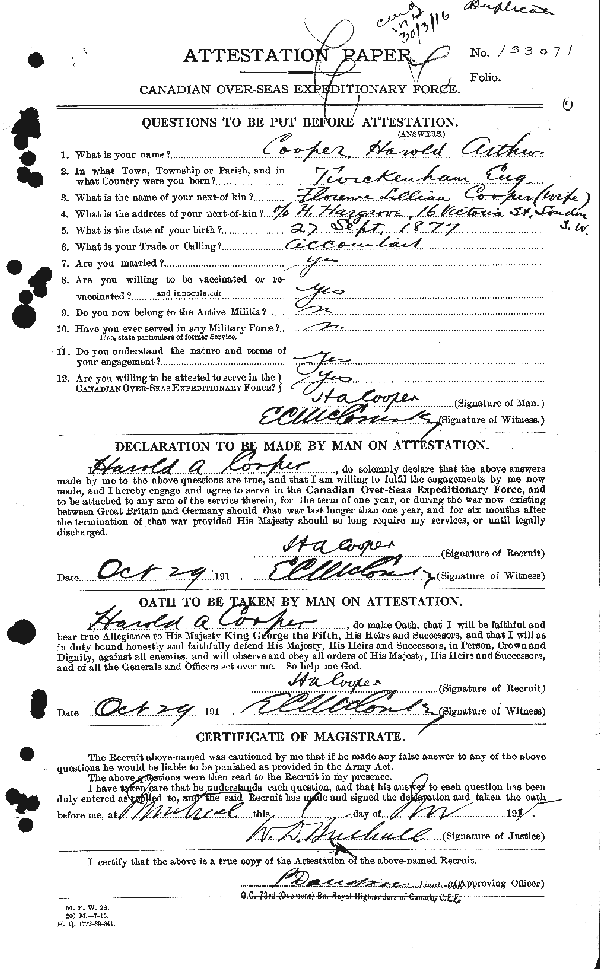 Duplicate
30/3/16
ATTESTATION PAPER
No. 133071
Folio.
CANADIAN OVER-SEAS EXPEDITIONARY FORCE.
QUESTIONS TO BE PUT BEFORE ATTESTATION.
(ANSWERS)
1. What is your name? Cooper Harold Arthur
2. In what Town, Township or Parish, and in
what Country were you born? Twickenham Eng
3. What is the name of your next-of-kin? Florence Lillian Cooper (wife)
4. What is the address of your next-of-kin? c/o H Hargrove, 16 Victoria St, London
S.W.
5. What is the date of your birth? 27 Sept, 1877
6. What is your Trade or Calling? Accountant
7. Are you married? yes
8. Are you willing to be vaccinated or re-
vaccinated? and inoculated? Yes
9. Do you now belong to the Active Militia? n
10. Have you ever served in any Military Force? n
If so, state particulars of former Service.
11. Do you understand the nature and terms of
your engagement? Yes
12. Are you willing to be attested to serve in the
CANADIAN OVER-SEAS EXPEDITIONARY FORCE? Yes
H A Cooper (Signature of Man.)
(Signature of Witness.)
DECLARATION TO BE MADE BY MAN ON ATTESTATION.
Harold A Cooper, do solemnly declare that the above answers
made by me to the above questions are true, and that I am willing to fulfil the engagements by me now
made, and I hereby engage and agree to serve in the Canadian Over-Seas Expeditionary Force, and
to be attached to any arm of the service therein, for the term of one year, or during the war now existing
between Great Britain and Germany should that war last longer than one year, and for six months after
the termination of that war provided His Majesty should so long require my services, or until legally
discharged.
H A Cooper (Signature of Recruit)
Date Oct 29 191 (Signature of Witness)
OATH TO BE TAKEN BY MAN ON ATTESTATION.
Harold A Cooper, do make Oath, that I will be faithful and
bear true Allegiance to His Majesty King George the Fifth, His Heirs and Successors, and that I will as
in duty bound honestly and faithfully defend His Majesty, His Heirs and Successors, in Person, Crown and
Dignity, against all enemies, and will observe and obey all orders of His Majesty, His Heirs and Successors,
and of all the Generals and Officers set over me. So help me God.
H A Cooper (Signature of Recruit)
Date Oct 29 191 (Signature of Witness)
CERTIFICATE OF MAGISTRATE.
The Recruit above-named was cautioned by me that if he made any false answer to any of the above
questions he would be liable to be punished as provided in the Army Act.
The above questions were then read to the Recruit in my presence.
I have taken care that he understands each question, and that his answer to each question has been
duly entered as replied to, and the said Recruit has made and signed the declaration and taken the oath
before me, at Montreal this day of Nov 191
(Signature of Justice)
I certify that the above is a true copy of the Attestation of the above-named Recruit.
(Approving Officer)
O.C. 73rd (Overseas) Bn. Royal Highlanders of Canada C.E.F.
M. F. W. 23.
200 M.-7-15.
H. Q. 1772-39-841.